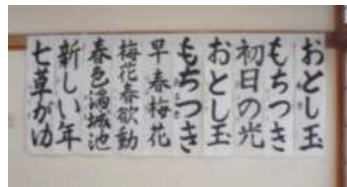 おとし玉
もちつき
初日の光
おとし玉
もちつき
早春梅花
梅花春欲動
春色満城池
新しい年
七草がゆ